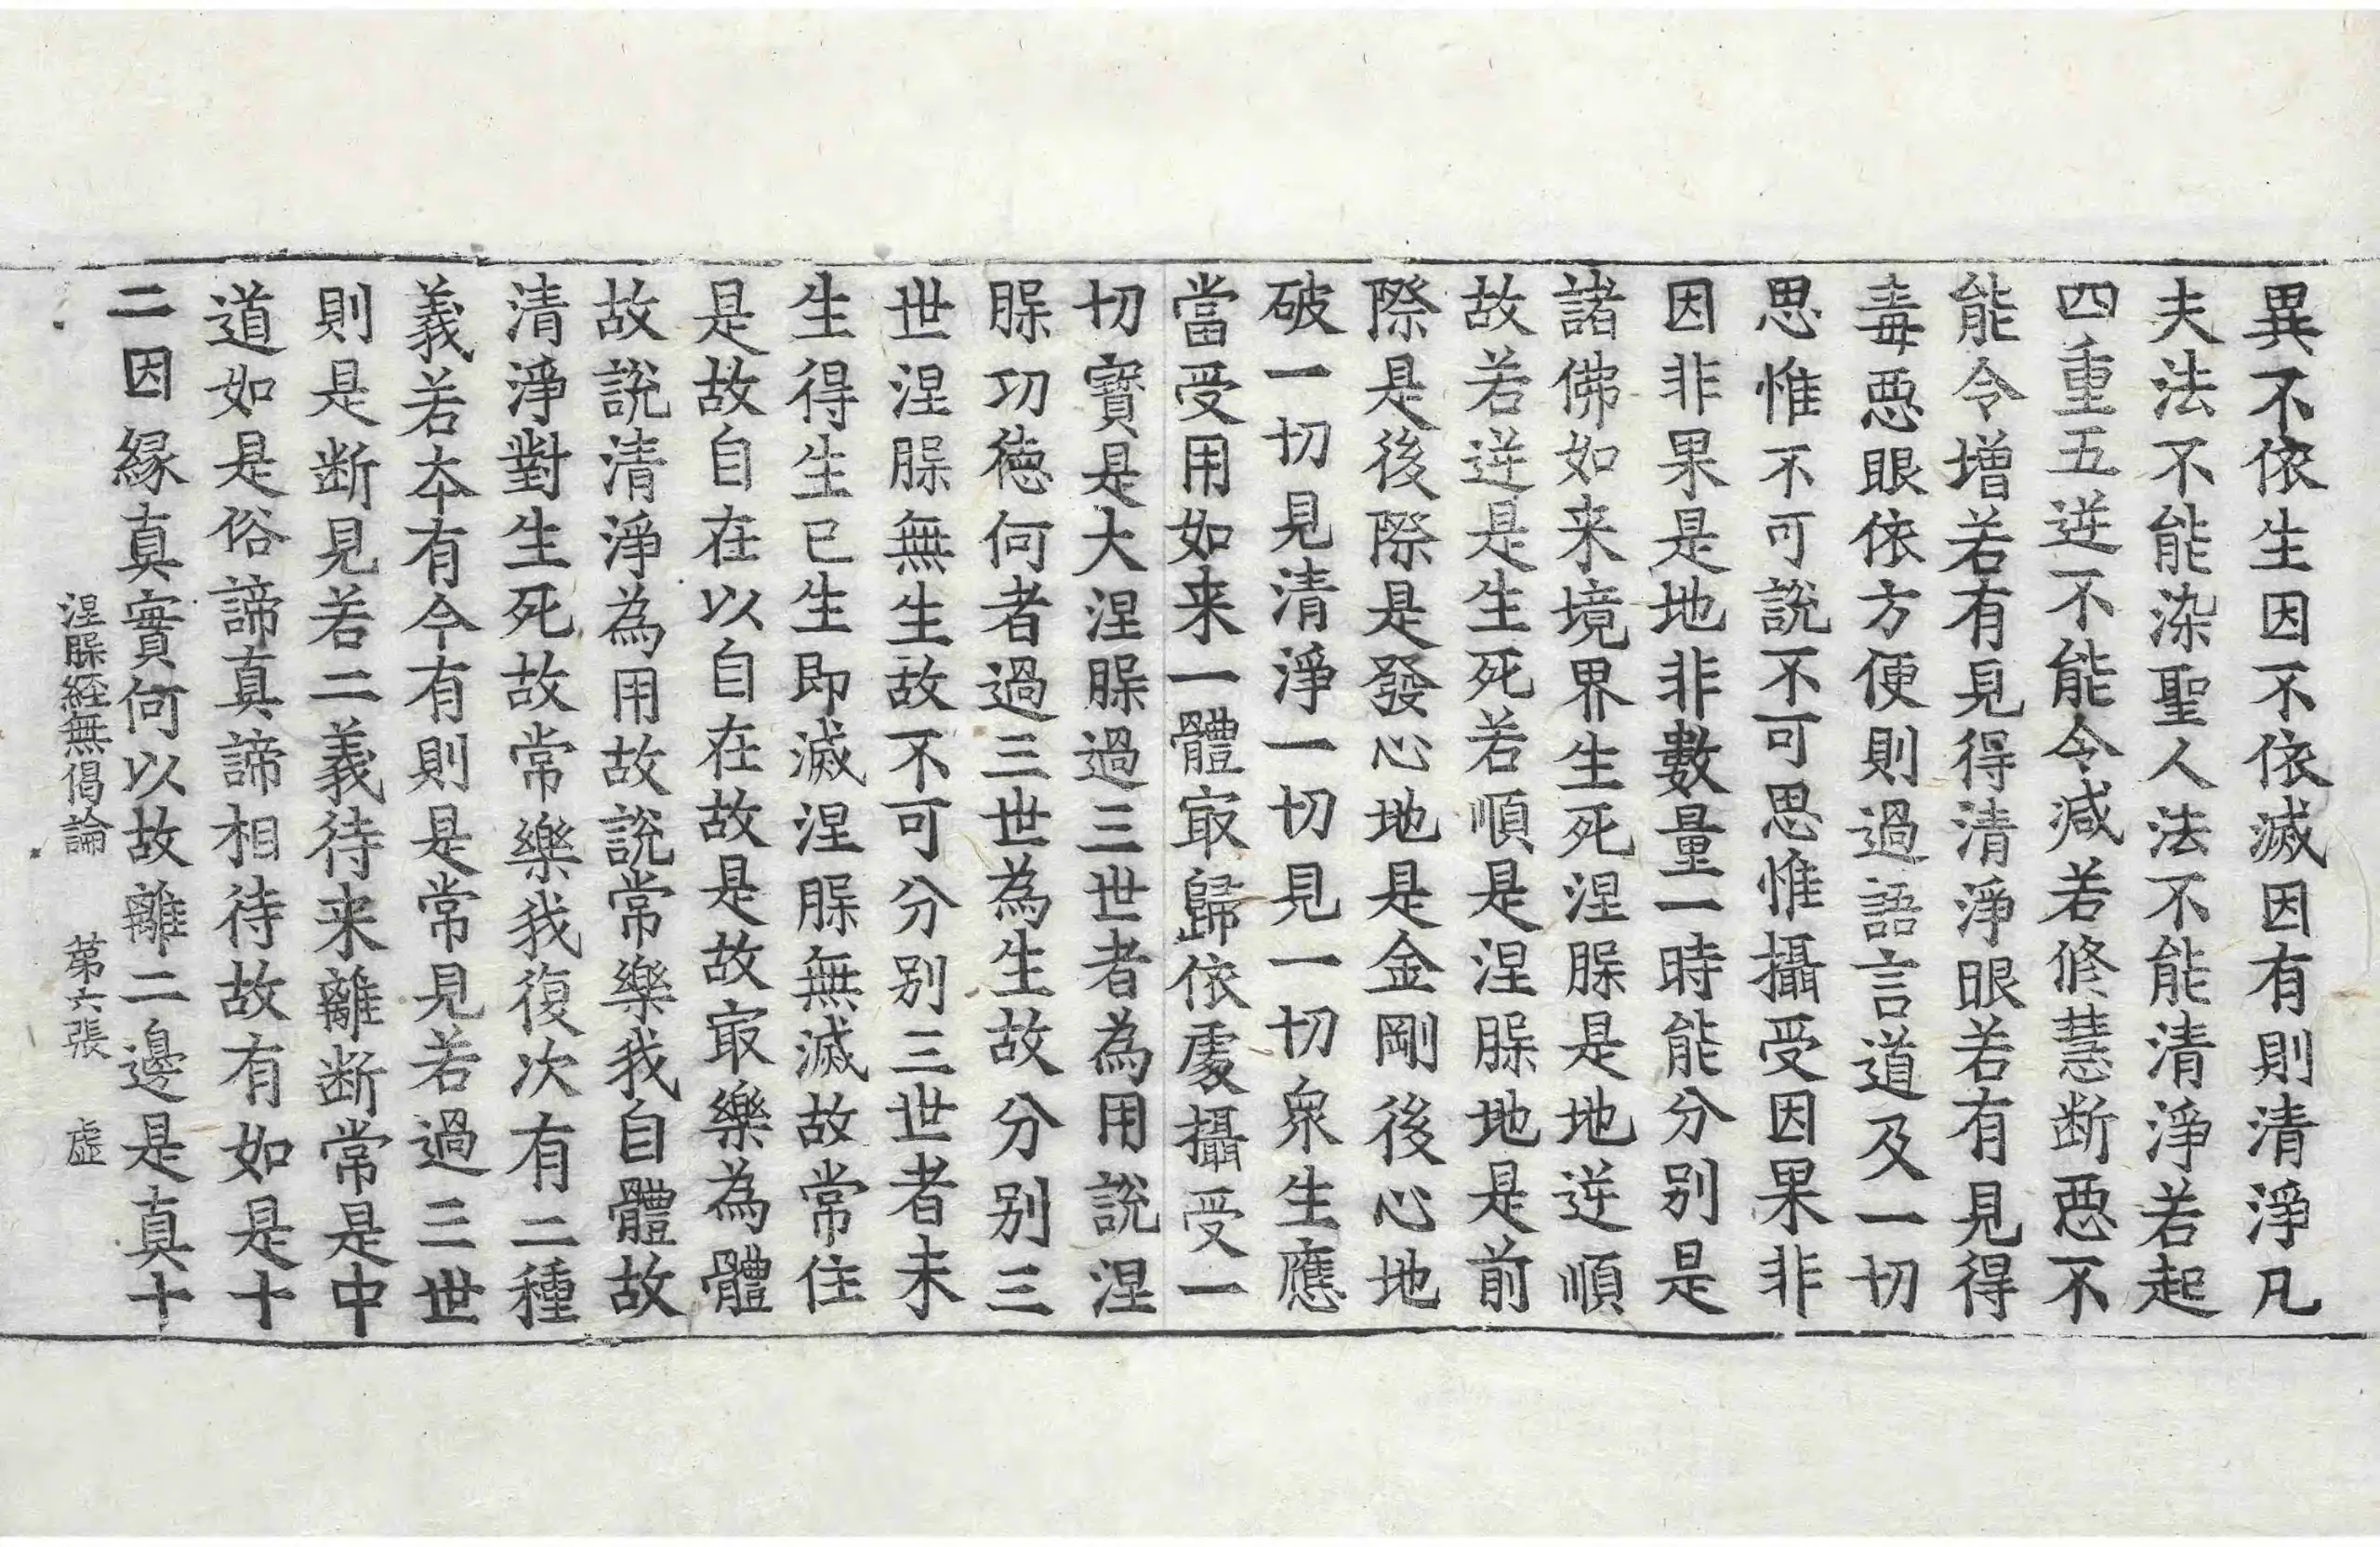 異不依生因不依滅因有則清淨凡
夫法不能染聖人法不能清淨若起
四重五逆不能令減若修慧断惡不
能令增若有見得清淨眼若有見得
毒惡眼依方便則過語言道及一切
思惟不可說不可思惟攝受因果非
因非果是地非數量一時能分別是
諸佛如来境界生死涅槃是地逆順
故若逆是生死若順是涅槃地是前
際是後際是發心地是金剛後心地
破一切見清淨一切見一切衆生應
當受用如来一體㝡歸依處攝受一
切寶是大涅槃過三世者為用說涅
槃功德何者過三世為生故分別三
世涅槃無生故不可分別三世者未
生得生已生即滅涅槃無滅故常住
是故自在以自在故是故㝡樂為體
故說清淨為用故說常樂我自體故
清淨對生死故常樂我復次有二種
義若夲有今有則是常見若過三世
則是断見若二義待来離断常是中
道如是俗諦真諦相待故有如是十
二因縁真實何以故離二邊是真十
涅槃経無偈論　第六張　虛